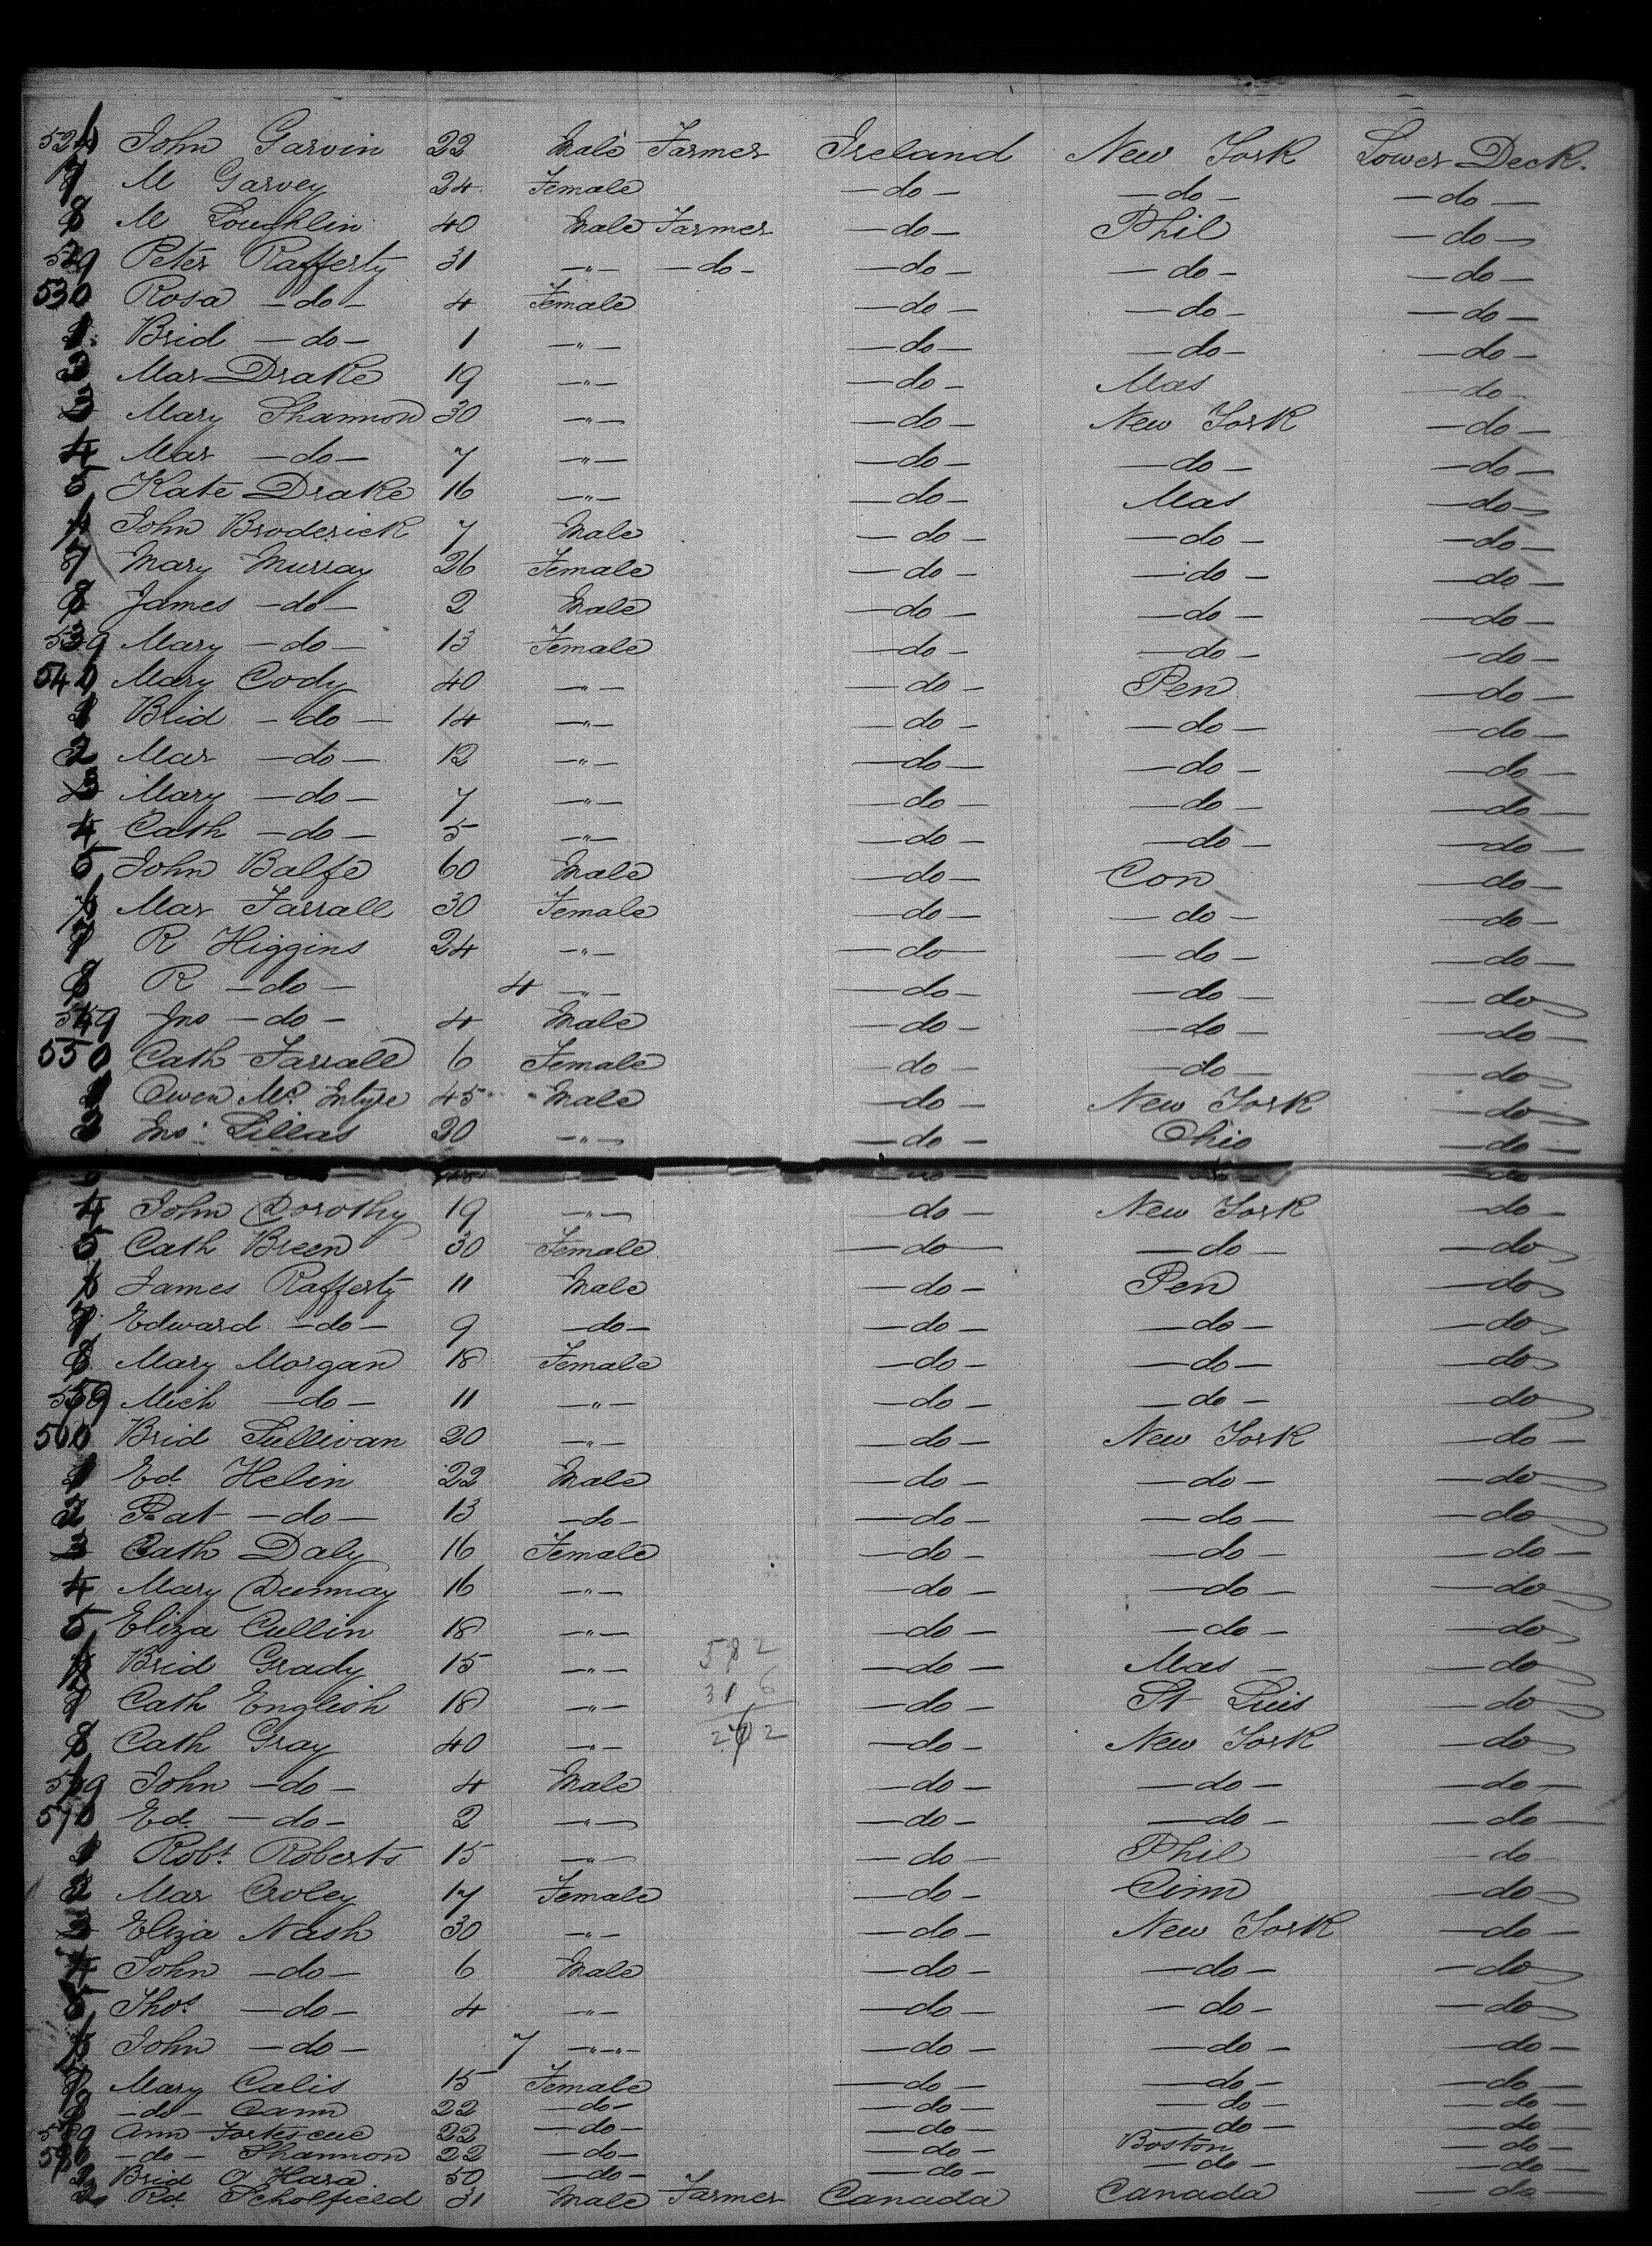 John Garvin 22 Male Farmer Ireland New York Lower Deck.
7 M Garvey 24 Female -do- -do- -do-
8 M Loughlin 40 Male Farmer -do- Phil -do-
529 Peter Rafferty 31 -"- -do- -do- -do- -do-
530 Rosa -do- 4 Female -do- -do- -do-
1 Brid -do- 1 -"- -do- -do- -do-
2 Mar Drake 19 -"- -do- Mas -do-
3 Mary Shannon 30 -"- -do- New York -do-
4 Mar -do- 7 -"- -do- -do- -do-
5 Kate Drake 16 -"- -do- Mas -do-
6 John Broderick 7 Male -do- -do- -do-
7 Mary Murray 26 Female -do- -do- -do-
8 James -do- 2 Male -do- -do- -do-
539 Mary -do- 13 Female -do- -do- -do-
540 Mary Cody 40 -"- -do- Pen -do-
1 Brid -do- 14 -"- -do- -do- -do-
2 Mar -do- 12 -"- -do- -do- -do-
3 Mary -do- 7 -"- -do- -do- -do-
4 Cath -do- 5 -"- -do- -do- -do-
5 John Balfe 60 Male -do- Con -do-
6 Mar Farrall 30 Female -do- -do- -do-
7 R Higgins 24 -"- -do- -do- -do-
8 R -do- 4 -"- -do- -do- -do-
549 Jno -do- 4 Male -do- -do- -do-
550 Cath Farrall 6 Female -do- -do- -do-
1 Owen Mc Entyre 45 Male -do- New York -do-
2 Jno Lillas 20 -"- -do- Ohio -do-
4 John Dorothy 19 -"- -do- New York -do-
5 Cath Breen 30 Female -do- -do- -do-
6 James Rafferty 11 Male -do- Pen -do-
7 Edward -do- 9 -do- -do- -do- -do-
8 Mary Morgan 18 Female -do- -do- -do-
559 Mich -do- 11 -"- -do- -do- -do-
560 Brid Sullivan 20 -"- -do- New York -do-
1 Ed. Helin 22 Male -do- -do- -do-
2 Pat -do- 13 -do- -do- -do- -do-
3 Cath Daly 16 Female -do- -do- -do-
4 Mary Dunnay 16 -"- -do- -do- -do-
5 Eliza Cullin 18 -"- -do- -do- -do-
6 Brid Grady 15 -"- 582 -do- Mas -do-
7 Cath English 18 -"- -do- St Luis -do-
8 Cath Gray 40 -"- -do- New York -do-
569 John -do- 4 Male -do- -do- -do-
570 Ed. -do- 2 -"- -do- -do- -do-
1 Robt. Roberts 15 -"- -do- Phil -do-
2 Mar Croley 17 Female -do- Cinn -do-
3 Eliza Nash 30 -"- -do- New York -do-
4 John -do- 6 Male -do- -do- -do-
5 Thos -do- 4 -"- -do- -do- -do-
6 John -do- 7 -"-"- -do- -do- -do-
7 Mary Calis 15 Female -do- -do- -do-
8 -do- Cann 22 -do- -do- -do- -do-
Ann Fortescue 22 -do- -do- -do- -do-
-do- Shannon 22 -do- -do- Boston -do-
Brid O Hara 50 -do- -do- -do- -do-
2 Rd. Scholfield 31 Male Farmer Canada Canada -do-